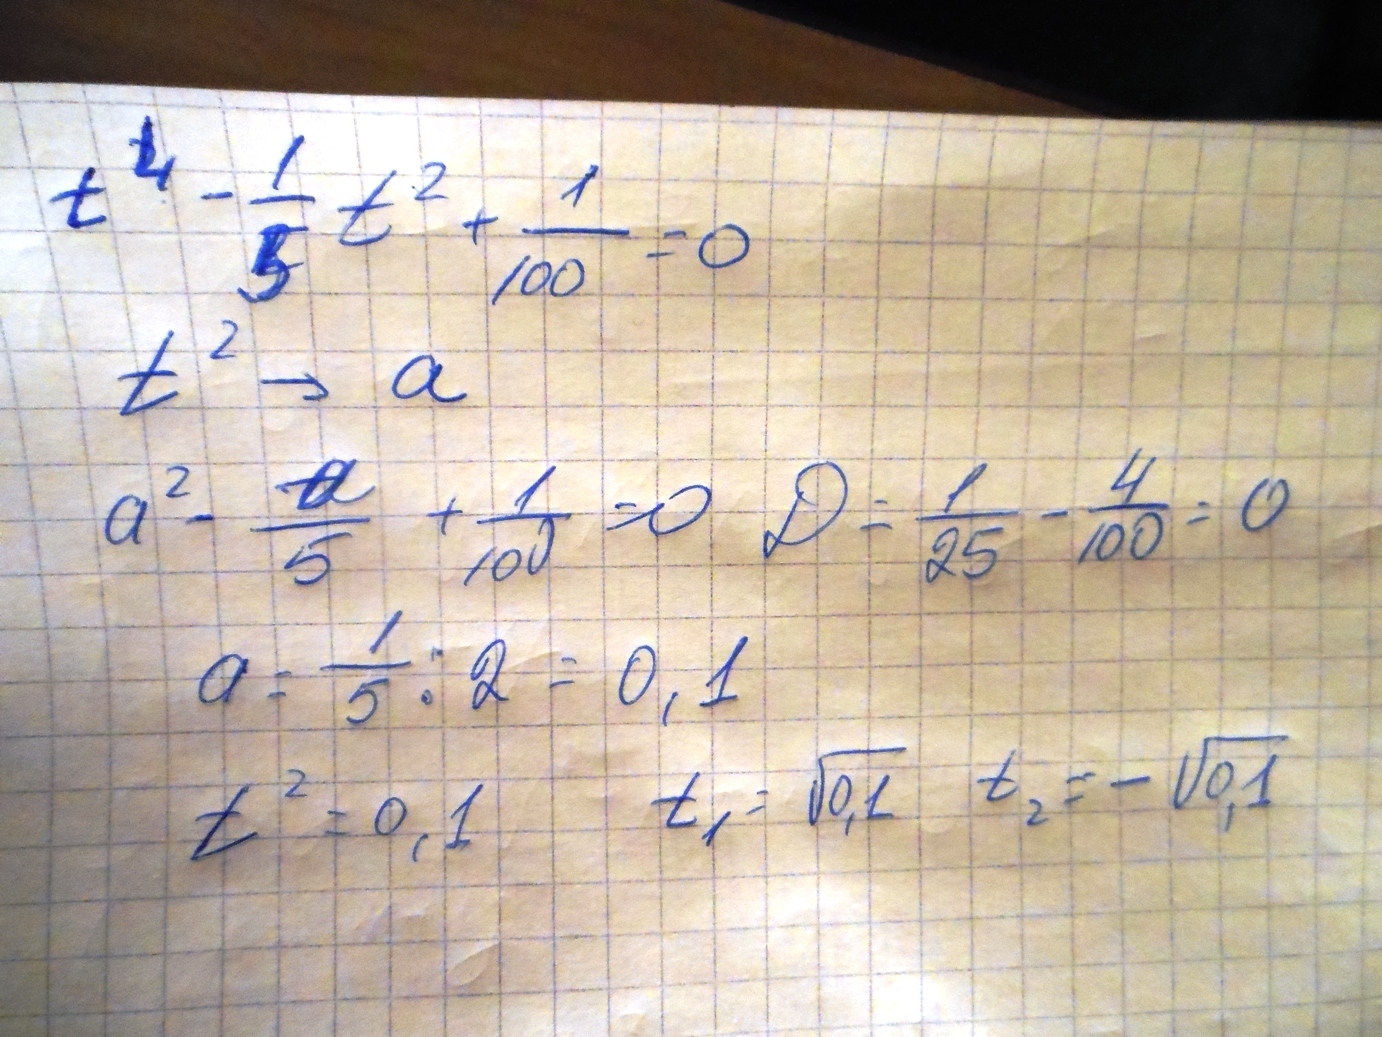 t⁴ - 1/5 t² + 1/100 = 0
t² → a
a² - a/5 + 1/100 = 0 D = 1/25 - 4/100 = 0
a = 1/5 : 2 = 0,1
t² = 0,1 t₁ = √0,1 t₂ = - √0,1